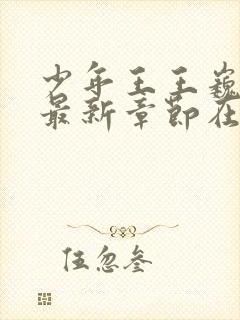 少年王王巍
最新章节在
伍忽叁